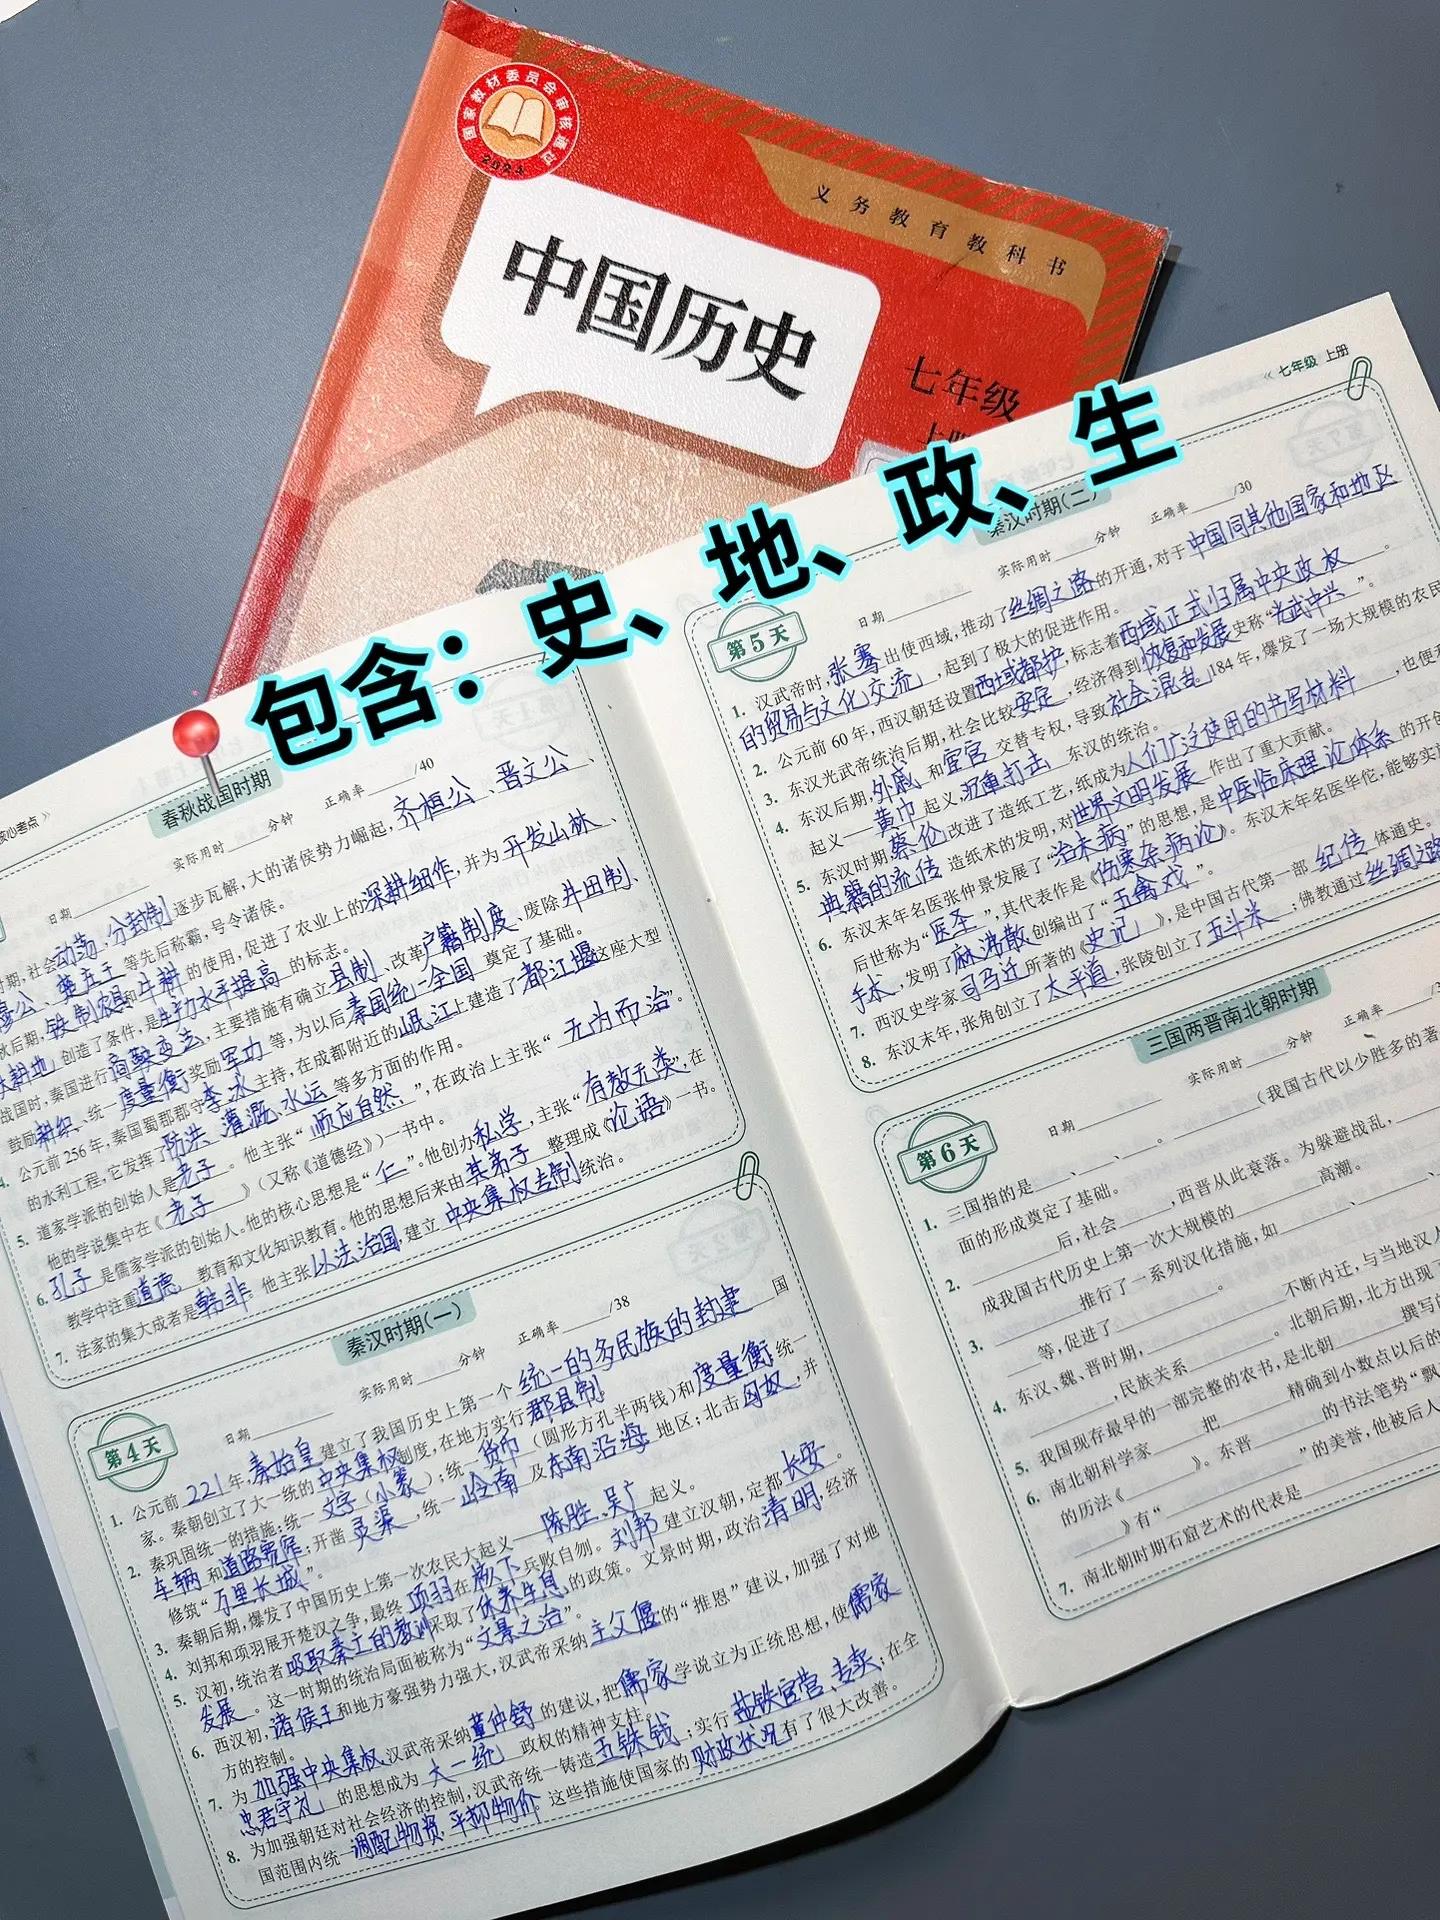 国家教材委员会审核通过
2024
义务教育教科书
中国历史
七年级
上册
包含：史、地、政、生
核心考点》
春秋战国时期
日期 实际用时 分钟 正确率 /40
时期，社会动荡，分封制逐步瓦解，大的诸侯势力崛起，齐桓公、晋文公、
穆公、楚庄王等先后称霸，号令诸侯。
秋后期，铁制农具和牛耕的使用，促进了农业上的深耕细作，并为开发山林、
耕地创造了条件，是生产力水平提高的标志。
战国时，秦国进行商鞅变法，主要措施有确立县制、改革户籍制度、废除井田制、
鼓励耕织、统一度量衡、奖励军功等，为以后秦国统一全国奠定了基础。
4. 公元前256年，秦国蜀郡郡守李冰主持，在成都附近的岷江上建造了都江堰这座大型
的水利工程，它发挥了防洪、灌溉、水运等多方面的作用。
5. 道家学派的创始人是老子。他主张“顺应自然”，在政治上主张“无为而治”。
他的学说集中在《老子》(又称《道德经》)一书中。
6. 孔子是儒家学派的创始人。他的核心思想是“仁”。他创办私学，主张“有教无类”，在
教学中注重道德教育和文化知识教育。他的思想后来由其弟子整理成《论语》一书。
7. 法家的集大成者是韩非。他主张以法治国，建立中央集权专制统治。
第4天
秦汉时期(一)
日期 实际用时 分钟 正确率 /38
1. 公元前221年，秦始皇建立了我国历史上第一个统一的多民族的封建国
家。秦朝创立了大一统的中央集权制度，在地方实行郡县制
2. 秦巩固统一的措施：统一文字(小篆)；统一货币(圆形方孔半两钱)和度量衡；统一
车辆和道路宽窄；开凿灵渠，统一岭南及东南沿海地区；北击匈奴，并
修筑“万里长城”。
3. 秦朝后期，爆发了中国历史上第一次农民大起义——陈胜、吴广起义。
4. 刘邦和项羽展开楚汉之争，最终项羽在垓下兵败自刎。刘邦建立汉朝，定都长安。
5. 汉初，统治者吸取秦亡的教训采取了休养生息的政策。文景时期，政治清明，经济
发展。这一时期的统治局面被称为“文景之治”。
6. 西汉初，诸侯王和地方豪强势力强大，汉武帝采纳主父偃的“推恩”建议，加强了对地
方的控制。
7. 为加强中央集权，汉武帝采纳董仲舒的建议，把儒家学说立为正统思想，使儒家
忠君守礼的思想成为大一统政权的精神支柱。
8. 为加强朝廷对社会经济的控制，汉武帝统一铸造五铢钱；实行盐铁官营、专卖；在全
国范围内统一调配物资，平抑物价。这些措施使国家的财政状况有了很大改善。
《七年级 上册
第5天
秦汉时期(二)
日期 实际用时 分钟 正确率 /30
1. 汉武帝时，张骞出使西域，推动了丝绸之路的开通，对于中国同其他国家和地区
的贸易与文化交流，起到了极大的促进作用。
2. 公元前60年，西汉朝廷设置西域都护，标志着西域正式归属中央政权。
3. 东汉光武帝统治后期，社会比较安定，经济得到恢复和发展史称“光武中兴”。
4. 东汉后期，外戚和宦官交替专权，导致社会混乱，184年，爆发了一场大规模的农民
起义——黄巾起义，沉重打击东汉的统治。
5. 东汉时期，蔡伦改进了造纸工艺，纸成为人们广泛使用的书写材料，也便利
典籍的流传 造纸术的发明，对世界文明发展作出了重大贡献。
6. 东汉末年名医张仲景发展了“治未病”的思想，是中医临床理论体系的开创
后世称为“医圣”，其代表作是《伤寒杂病论》。东汉末年名医华佗，能够实施
手术，发明了麻沸散，创编出了“五禽戏”。
7. 西汉史学家司马迁所著的《史记》，是中国古代第一部纪传体通史。
8. 东汉末年，张角创立了太平道，张陵创立了五斗米；佛教通过丝绸之路
第6天
三国两晋南北朝时期
日期 实际用时 分钟 正确率
1. 三国指的是 、 、 。 (我国古代以少胜多的著
面的形成奠定了基础。
2. 后，社会 ，西晋从此衰落。为躲避战乱，
成我国古代历史上第一次大规模的 高潮。
3. 推行了一系列汉化措施，如 、 、
等，促进了 。
4. 东汉、魏、晋时期， 不断内迁，与当地汉人
，民族关系 。北朝后期，北方出现了
5. 我国现存最早的一部完整的农书，是北朝 撰写的
6. 南北朝科学家 把 精确到小数点以后的
的历法《 》。东晋 的书法笔势“飘
》有“ ”的美誉，他被后人
7. 南北朝时期石窟艺术的代表是